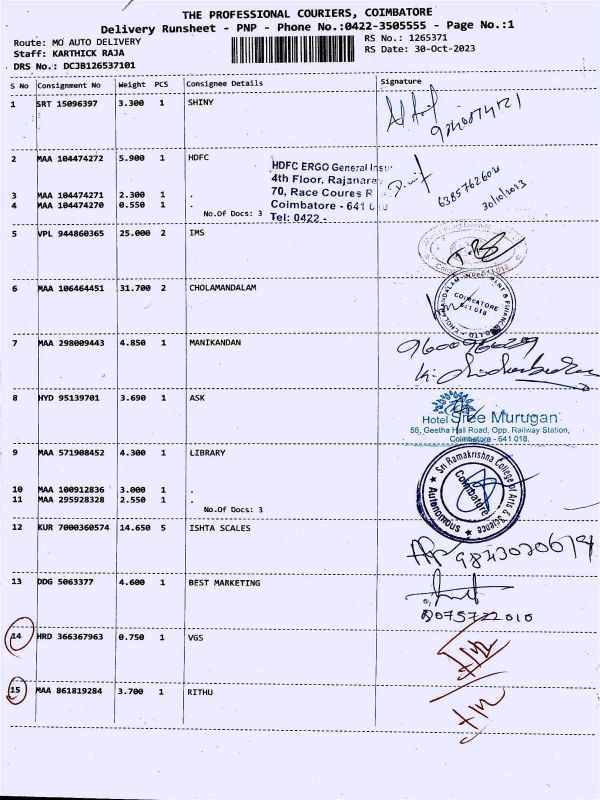 THE PROFESSIONAL COURIERS, COIMBATORE
Delivery Runsheet - PNP - Phone No.:0422-3505555 - Page No.:1
Route: MO AUTO DELIVERY
RS No.: 1265371
Staff: KARTHICK RAJA
RS Date: 30-Oct-2023
DRS No.: DCJB126537101
S No Consignment No Weight PCS Consignee Details Signature
1 SRT 15096397 3.300 1 SHINY
2 MAA 104474272 5.900 1 HDFC
HDFC ERGO General Insu
4th Floor, Rajanara
3 MAA 104474271 2.300 1 .
70, Race Coures R
6385762602
4 MAA 104474270 0.550 1 .
Coimbatore - 641
30/10/2023
No.Of Docs: 3
Tel: 0422 -
5 VPL 944860365 25.000 2 IMS
6 MAA 106464451 31.700 2 CHOLAMANDALAM
COIMBATORE
641 018
7 MAA 298009443 4.850 1 MANIKANDAN
8 HYD 95139701 3.690 1 ASK
Hotel Sree Murugan
56, Geetha Hall Road, Opp. Railway Station,
Coimbatore - 641 018.
9 MAA 571908452 4.300 1 LIBRARY
Sri Ramakrishna College of Arts & Science
Coimbatore
Autonomous
10 MAA 100912836 3.000 1 .
11 MAA 295928328 2.550 1 .
No.Of Docs: 3
12 KUR 7000360574 14.650 5 ISHTA SCALES
13 DDG 5063377 4.600 1 BEST MARKETING
14 HRD 366367963 0.750 1 VGS
15 MAA 861819284 3.700 1 RITHU